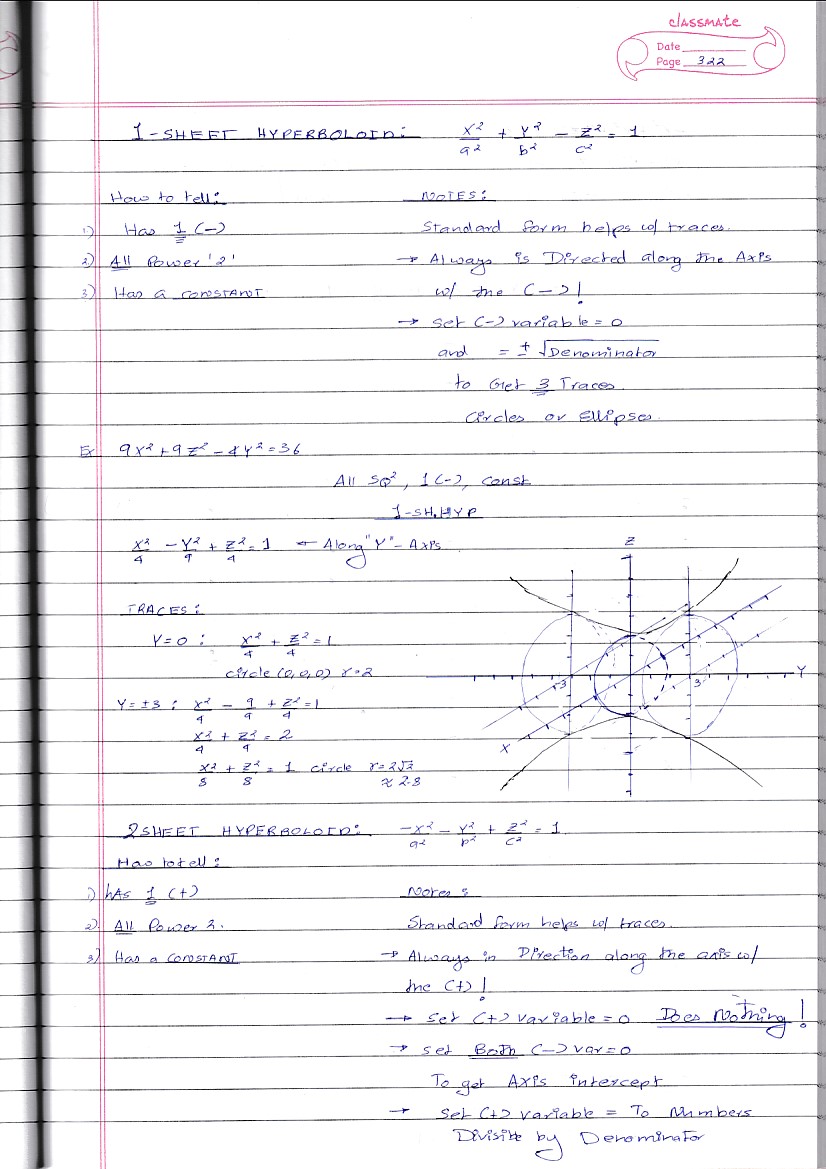 classmate
Date
Page 322
1-SHEET HYPERBOLOID: x²/a² + y²/b² - z²/c² = 1
How to tell: NOTES:
1) Has 1 (-) Standard form helps w/ traces.
2) All Power '2' → Always is Directed along the Axis
3) Has a CONSTANT w/ the (-)!
→ Set (-) variable = 0
and = ± √Denominator
to Get 3 Traces
Circles or Ellipses.
Ex 9x² + 9z² - 4y² = 36
All SQ², 1(-), const
1-SH.HYP
x²/4 - y²/9 + z²/4 = 1 ← Along "Y"-Axis
Z
TRACES:
Y=0 : x²/4 + z²/4 = 1
circle (0,0,0) r=2
-3 3 Y
Y=±3 : x²/4 - 9/9 + z²/4 = 1
x²/4 + z²/4 = 2
X
x²/8 + z²/8 = 1 circle r=2√2
≈ 2.8
2 SHEET HYPERBOLOID: -x²/a² - y²/b² + z²/c² = 1
How to tell:
1) hAs 1 (+) Notes:
2) All Power 2. Standard form helps w/ traces.
3) Has a CONSTANT → Always in Direction along the axis w/
the (+)!
→ Set (+) variable = 0 Does Nothing!
→ set Both (-) var=0
To get Axis intercept
→ Set (+) variable = To Numbers
Divisible by Denominator